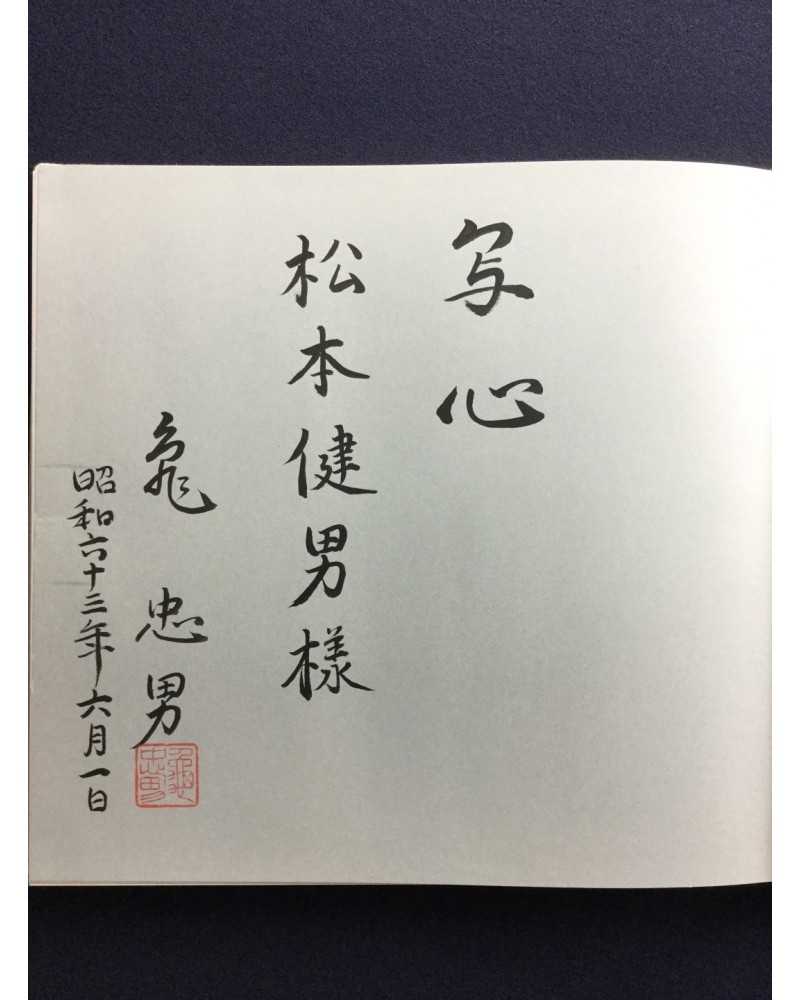 写心
松本健男様
亀忠男
昭和六十三年六月一日
亀忠男